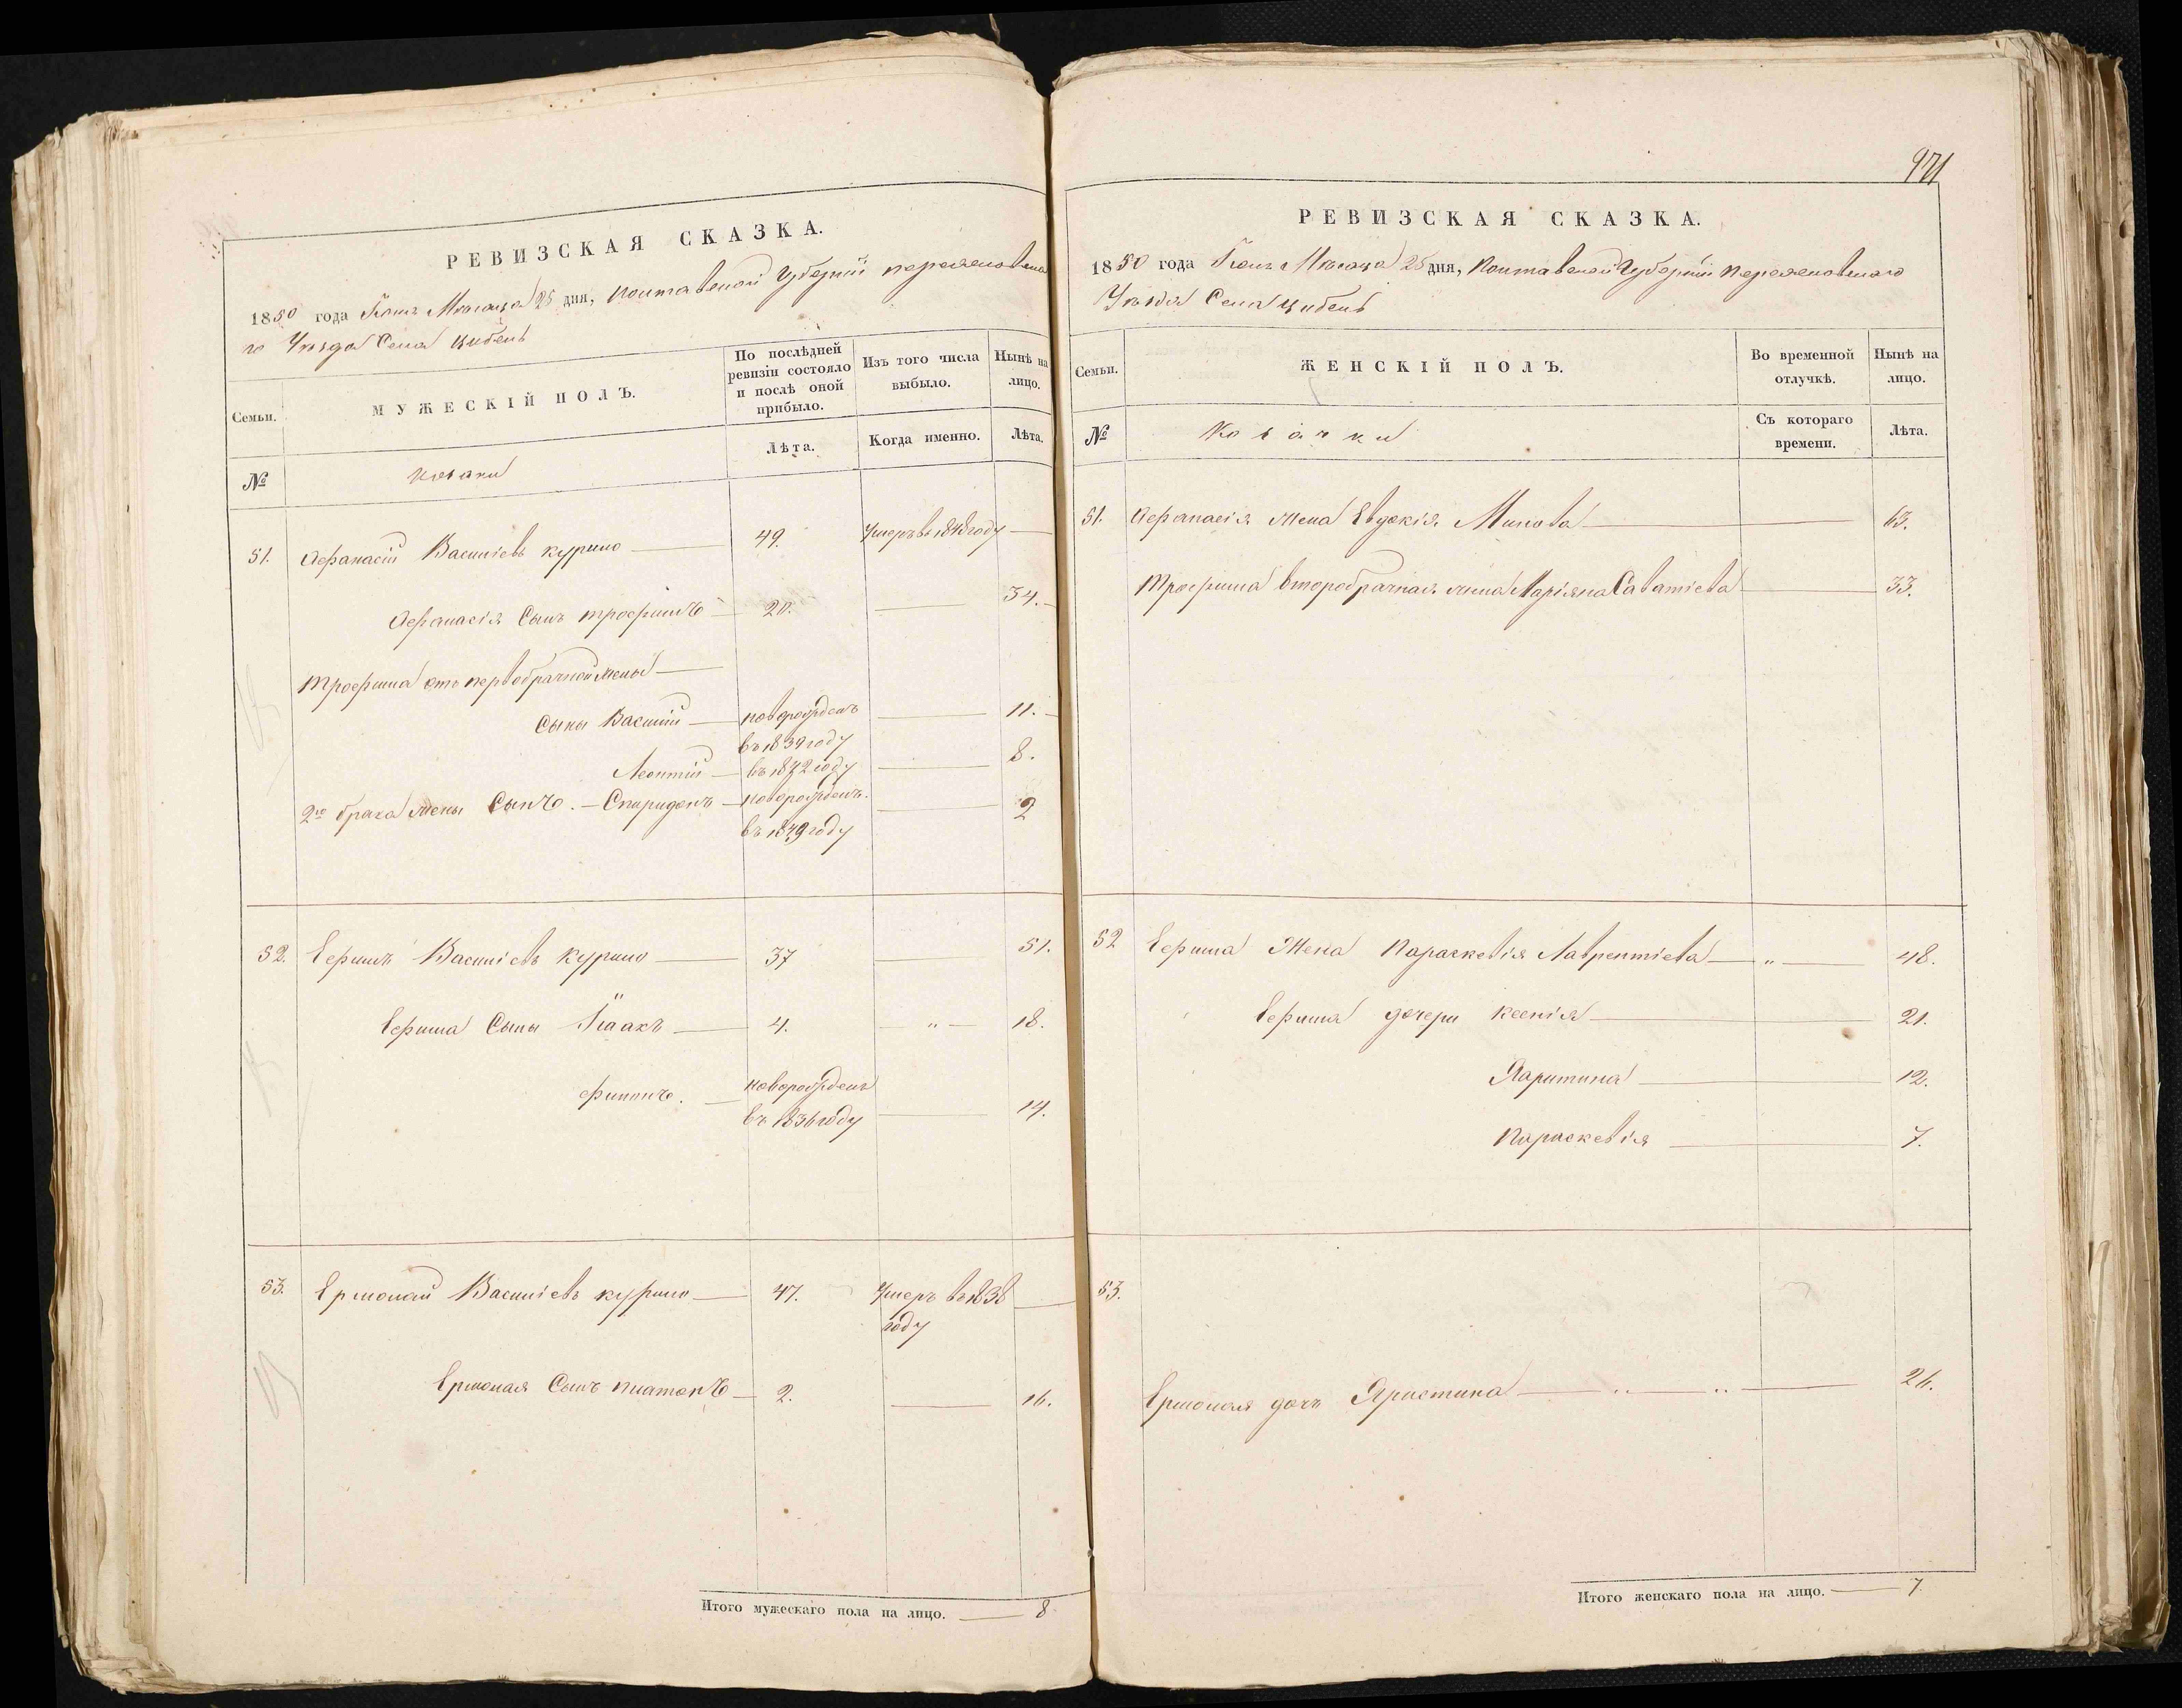 РЕВИЗСКАЯ СКАЗКА.
1850 года Іюнь Мѣсяца 25 дня, Полтавской Губерніи Переяславска
го Уѣзда Села Цибель
Семьи.
МУЖЕСКІЙ ПОЛЪ.
По послѣдней ревизіи состояло и послѣ оной прибыло.
Изъ того числа выбыло.
Нынѣ на лицо.
Лѣта.
Когда именно.
Лѣта.
№
Козаки
51. Афанасій Василіевъ Курило 49. Умеръ въ 1848 году
Афанасія Сынъ Трофимъ 20. 34.
Трофима отъ первобрачной жены
Сыны Василій новорожденъ 11.
въ 1839 году
Леонтій въ 1842 году 8.
2го брака жены Сынъ. Спиридонъ новорожденъ. 2
въ 1849 году
52. Ефимъ Василіевъ Курило 37 51.
Ефима Сыны Ісаакъ 4. " 18.
Филипъ. новорожденъ
въ 1836 году 14.
53. Ермолай Василіевъ Курило 47. Умеръ въ 1838
году
Ермолая Сынъ Платонъ 2. 16.
Итого мужескаго пола на лицо. 8
971
РЕВИЗСКАЯ СКАЗКА.
1850 года Іюнь Мѣсяца 25 дня, Полтавской Губерніи Переяславскаго
Уѣзда Села Цибель
Семьи.
ЖЕНСКІЙ ПОЛЪ.
Во временной отлучкѣ.
Нынѣ на лицо.
№
Козачки
Съ котораго времени.
Лѣта.
51. Афанасія жена Евдокія 63.
Трофима второбрачная жена Маріяна Саватіева 33.
52 Ефима Жена Параскевія Лаврентіева " 48.
Ефима дочери Ксенія 21.
Харитина 12.
Параскевія 7.
53.
Ермолая дочь Христина " " 26.
Итого женскаго пола на лицо. 7.